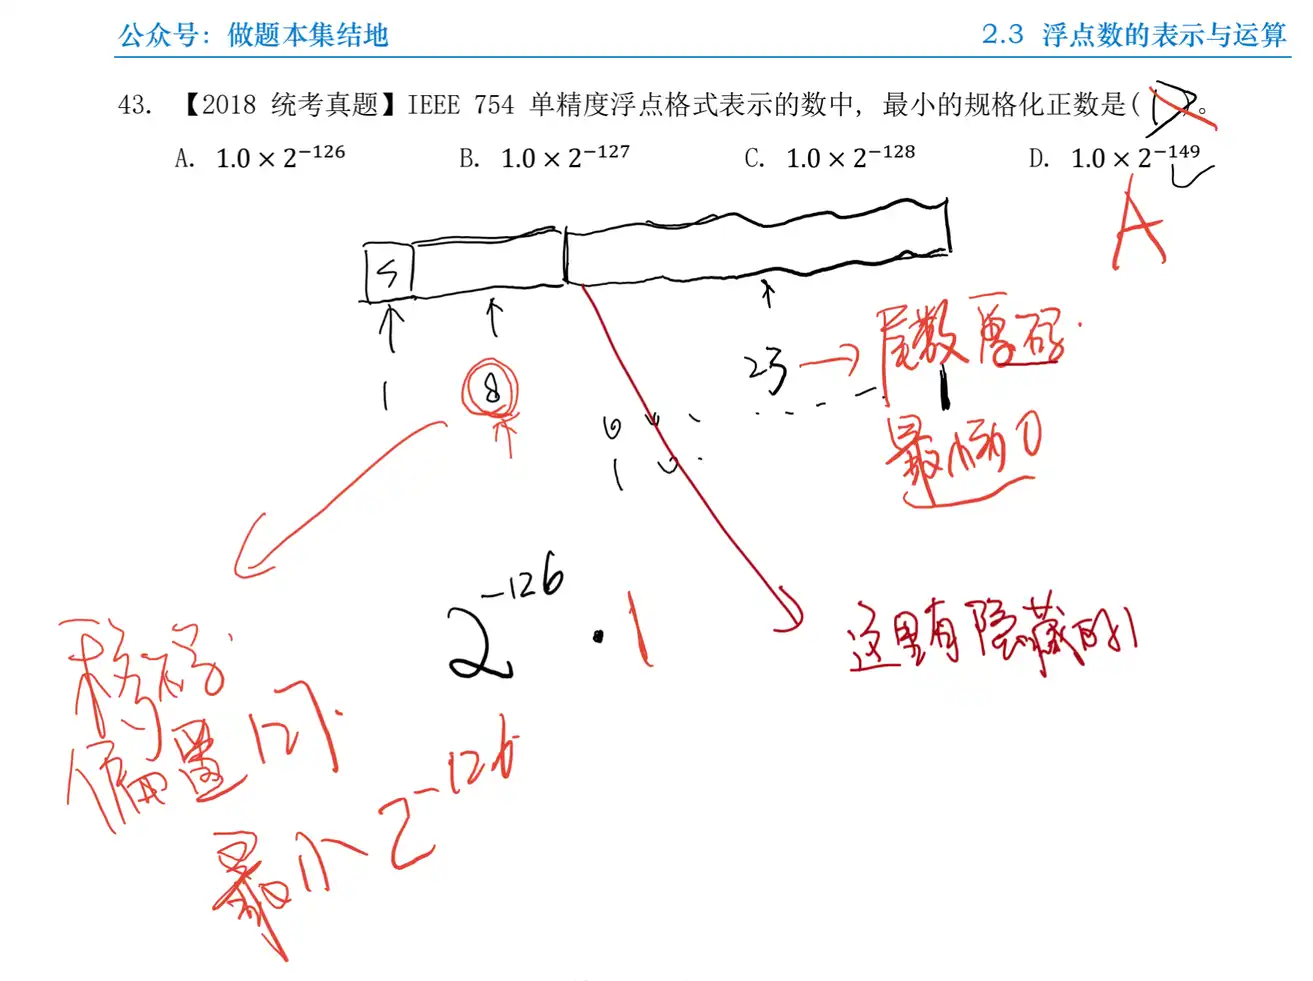 公众号：做题本集结地
2.3 浮点数的表示与运算
43. 【2018 统考真题】IEEE 754 单精度浮点格式表示的数中，最小的规格化正数是( D )。
A. 1.0 × 2⁻¹²⁶ B. 1.0 × 2⁻¹²⁷ C. 1.0 × 2⁻¹²⁸ D. 1.0 × 2⁻¹⁴⁹
A
S
1 8 23 → 尾数原码
最小为0
2⁻¹²⁶ · 1
这里有隐藏的1
移码
偏置127
最小 2⁻¹²⁶